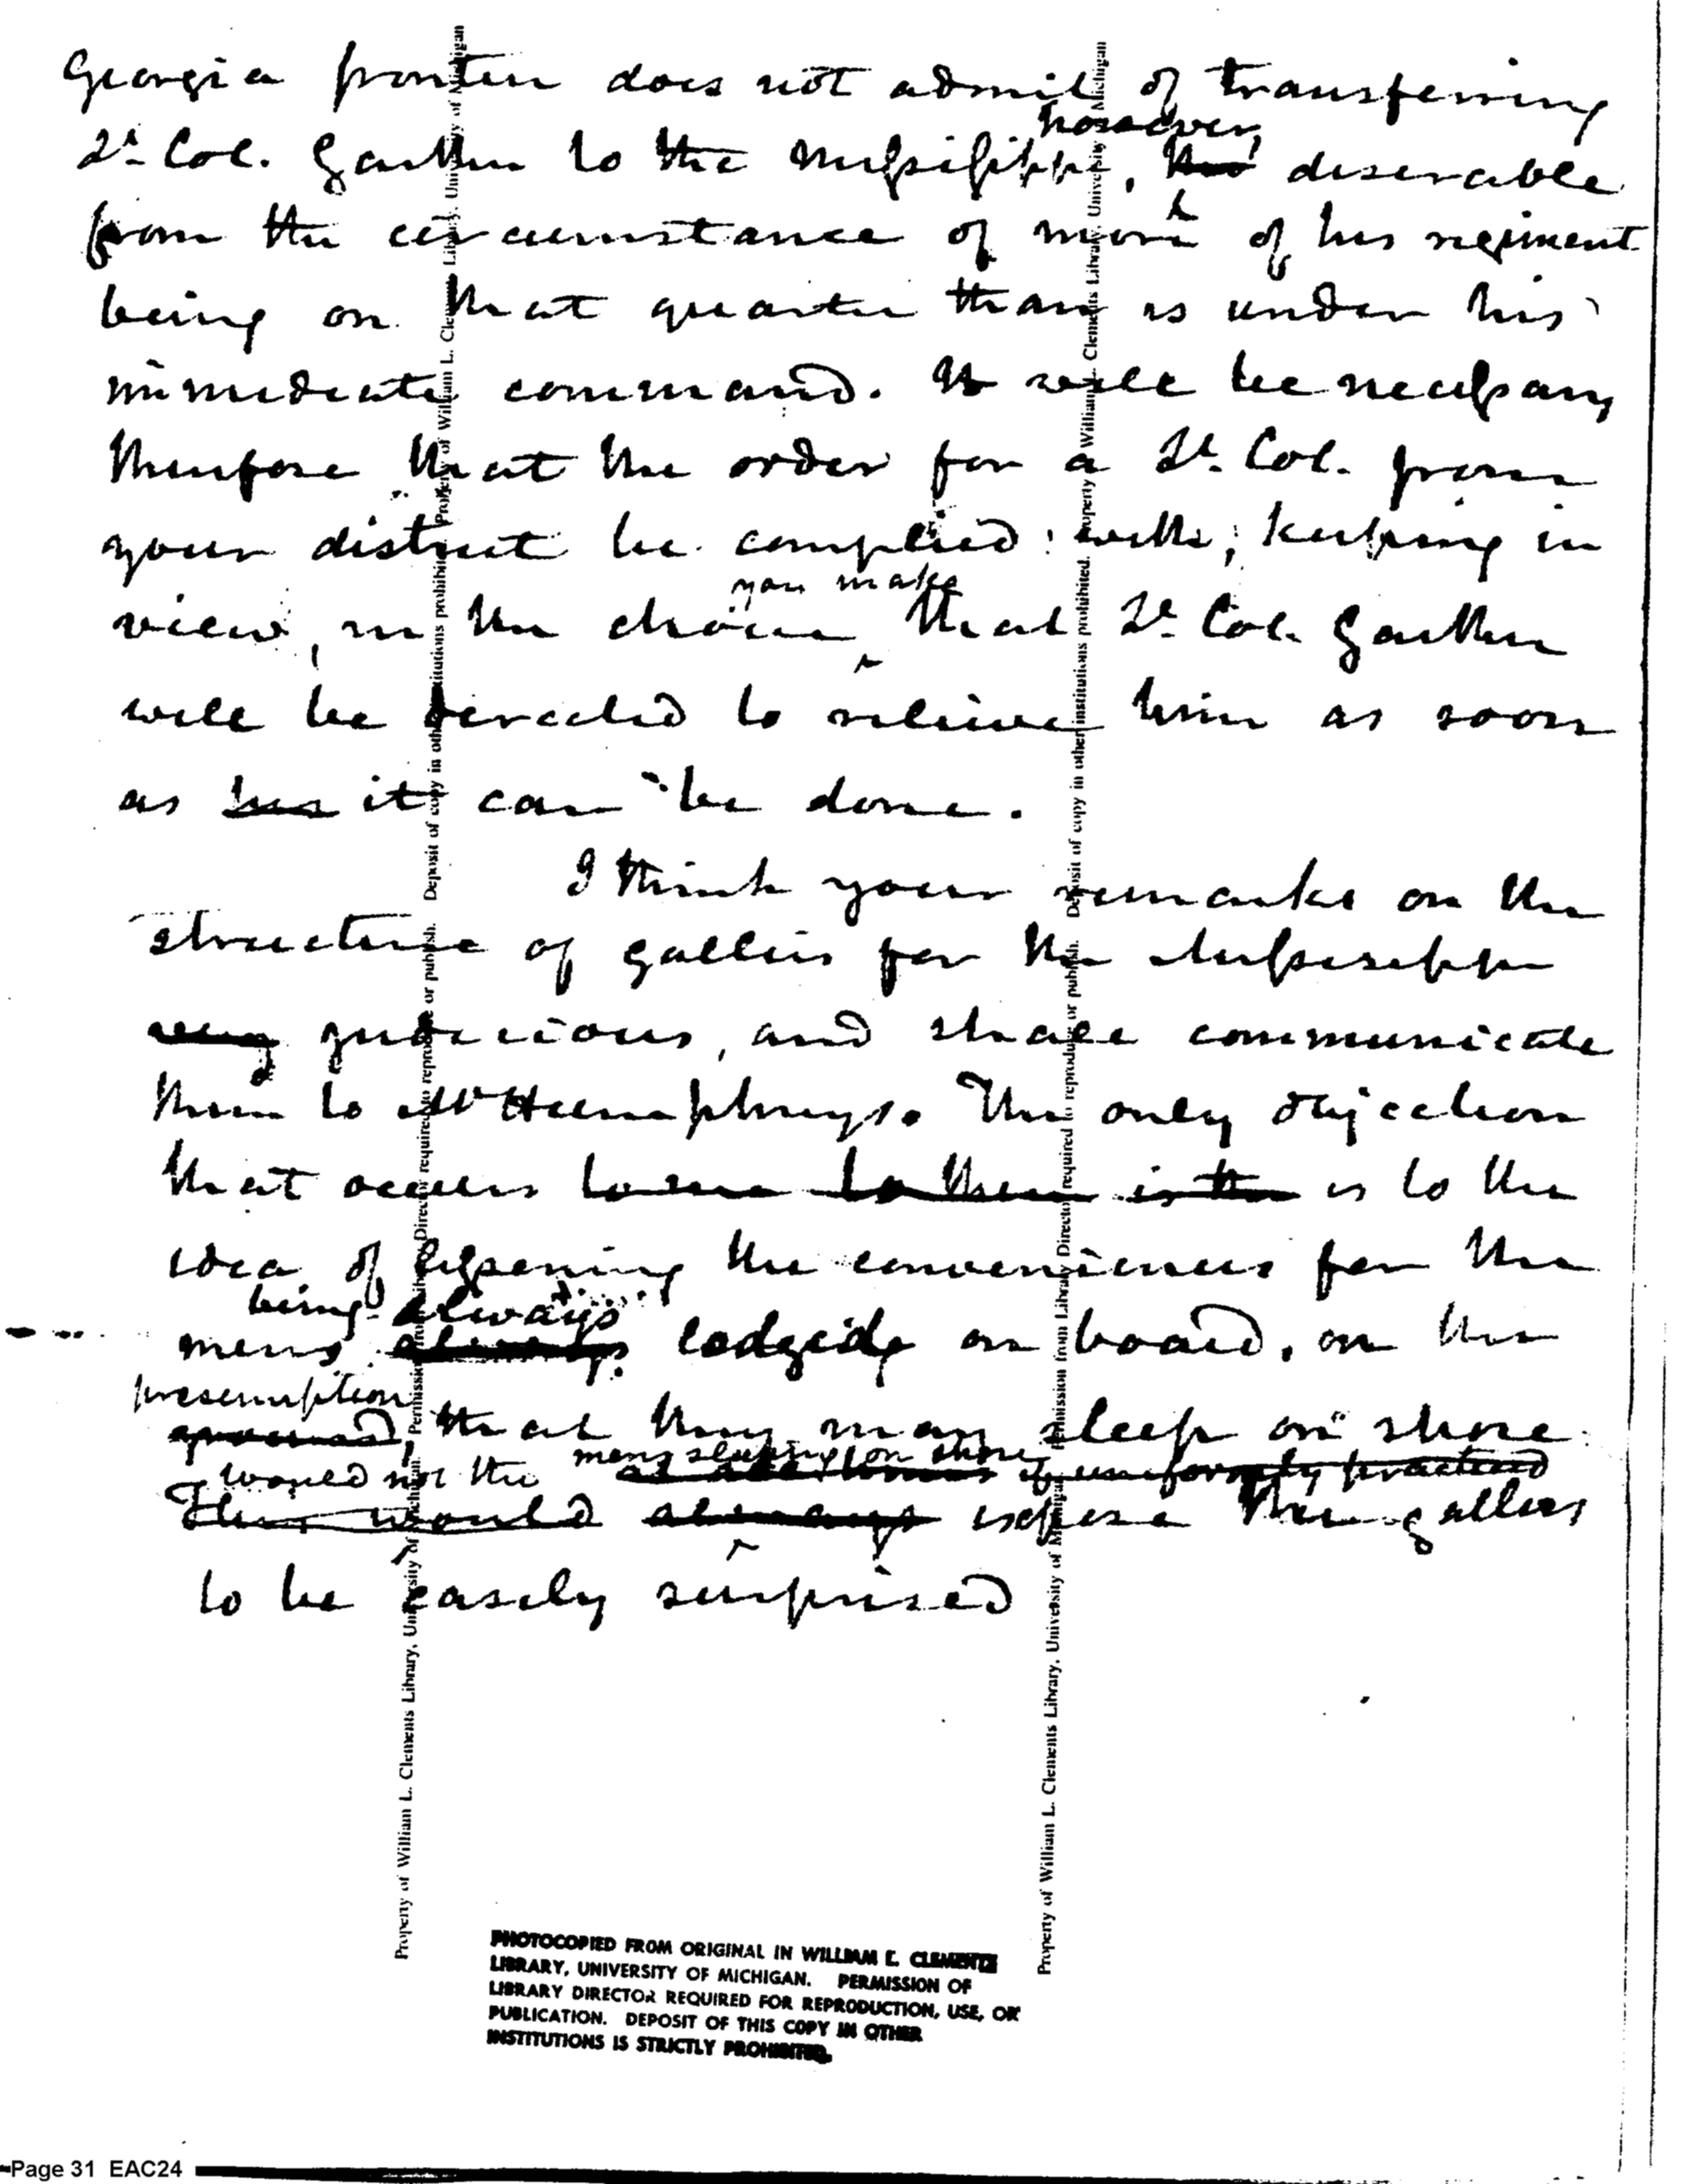 Georgia frontier does not admit of transferring
however,
Lt. Col. Gaither to the Missisippi, tho' deserable
from the circumstance of more of his regiment
being on that quarter than is under his
immediate command. It will be necessary
therefore that the order for a Lt. Col. from
your district be complied with, keeping in
you make
view, in the choice that Lt. Col. Gaither
will be derected to relieve him as soon
as his it can be done.
I think your remarks on the
structure of gallies for the Missisippi
very judicious, and shall communicate
them to Mr Humphreys. The only objection
that occurs to me to them is the is to the
idea of lessening the conveniences for the
being always
mens always lodgeing on board, on the
presumption
ground, that they may sleep on shore
would not the mens sleeping on shore if uniformly practised
This would always expose the gallies
to be easily surprised
Property of William L. Clements Library, University of Michigan. Permission from Library Director required to reproduce or publish. Deposit of copy in other institutions prohibited. Property of William L. Clements Library, University of Michigan
Property of William L. Clements Library, University of Michigan. Permission from Library Director required to reproduce or publish. Deposit of copy in other institutions prohibited. Property of William L. Clements Library, University of Michigan
PHOTOCOPIED FROM ORIGINAL IN WILLIAM L. CLEMENTS
LIBRARY, UNIVERSITY OF MICHIGAN. PERMISSION OF
LIBRARY DIRECTOR REQUIRED FOR REPRODUCTION, USE, OR
PUBLICATION. DEPOSIT OF THIS COPY IN OTHER
INSTITUTIONS IS STRICTLY PROHIBITED.
Page 31 EAC24